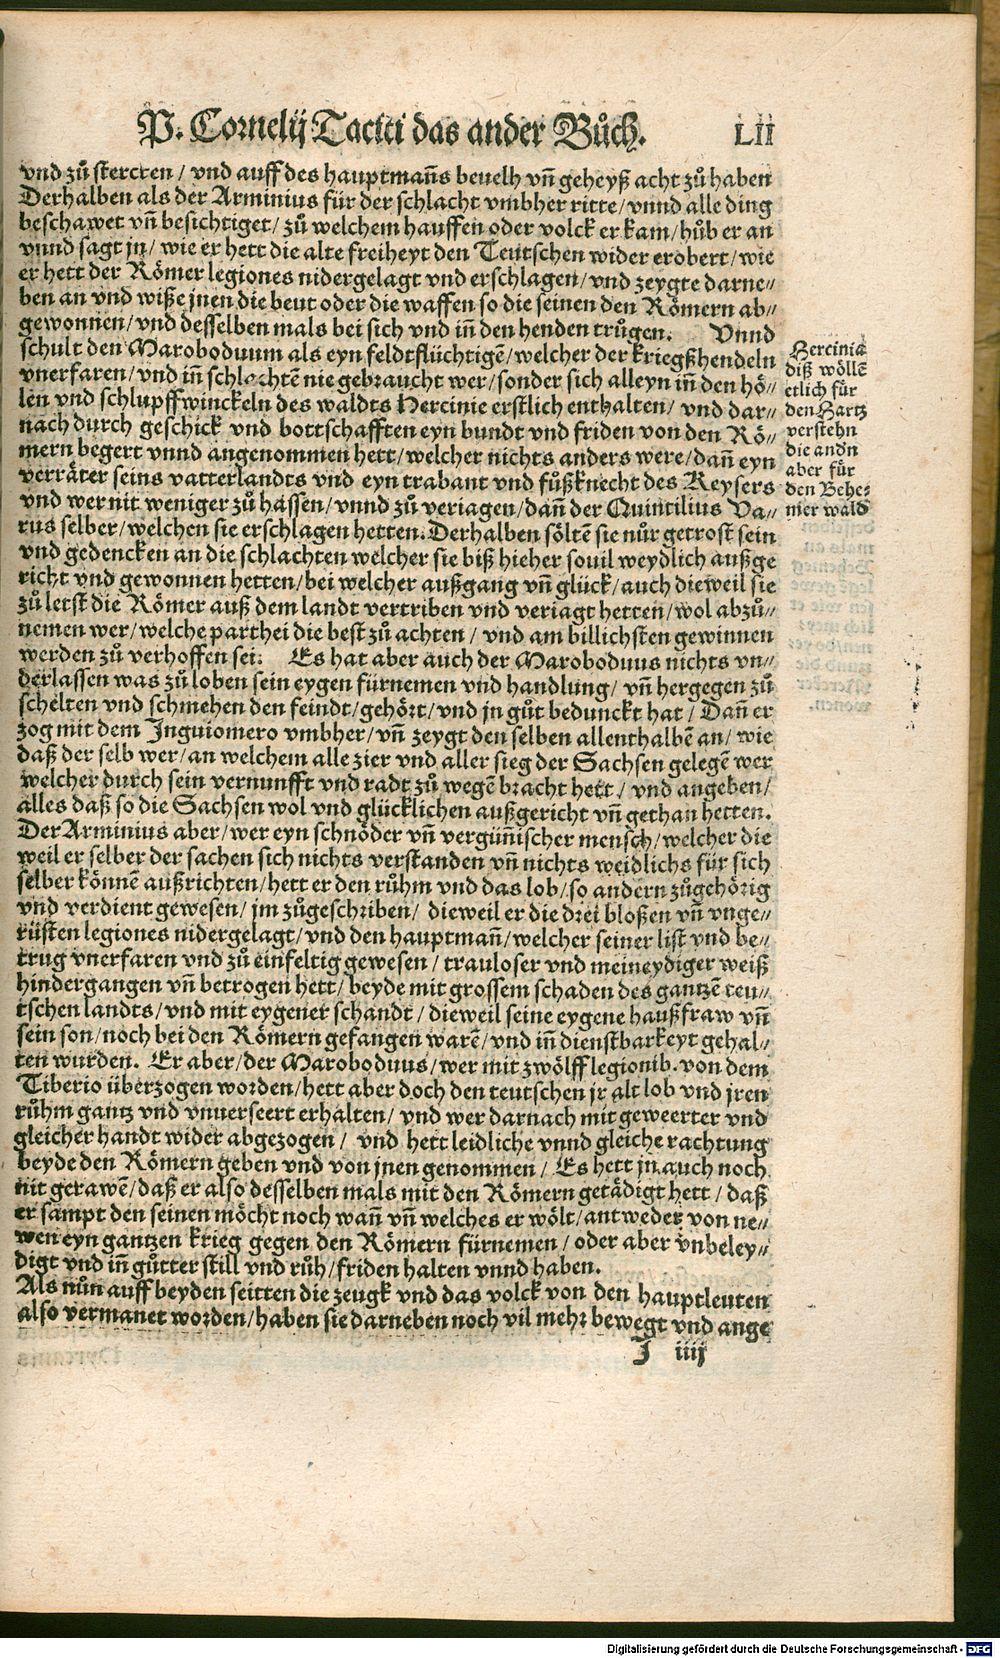 P. Cornelij Taciti das ander Bůch. LII
vnd zů stercken / vnd auff des hauptmañs beuelh vñ geheyß acht zů haben
Derhalben als der Arminius für der schlacht vmbher ritte / vnnd alle ding
beschawet vñ besichtiget / zů welchem hauffen oder volck er kam / hůb er an
vnnd sagt jn / wie er hett die alte freiheyt den Teutschen wider erobert / wie
er hett der Römer legiones nidergelagt vnd erschlagen / vnd zeygte darne⸗
ben an vnd wiße jnen die beut oder die waffen so die seinen den Römern ab⸗
gewonnen / vnd desselben mals bei sich vnd iñ den henden trůgen. Vnnd
schult den Maroboduum als eyn feldtflüchtigē / welcher der kriegßhendeln
vnerfaren / vnd iñ schlachtē nie gebraucht wer / sonder sich alleyn iñ den hö⸗
len vnd schlupffwinckeln des waldts Hercinie erstlich enthalten / vnd dar⸗
nach durch geschick vnd bottschafften eyn bundt vnd friden von den Rö⸗
mern begert vnnd angenommen hett / welcher nichts anders were / dañ eyn
verräter seins vatterlandts vnd eyn trabant vnd fůßknecht des Keysers
vnd wer nit weniger zů hassen / vnnd zů veriagen / dañ der Quintilius Va⸗
rus selber / welchen sie erschlagen hetten: Derhalben söltē sie nůr getrost sein
vnd gedencken an die schlachten welcher sie biß hieher souil weydlich außge
richt vnd gewonnen hetten / bei welcher außgang vñ glück / auch dieweil sie
zů letst die Römer auß dem landt vertriben vnd veriagt hetten / wol abzů⸗
nemen wer / welche parthei die best zů achten / vnd am billichsten gewinnen
werden zů verhoffen sei: Es hat aber auch der Maroboduus nichts vn⸗
derlassen was zů loben sein eygen fürnemen vnd handlung / vñ hergegen zů
schelten vnd schmehen den feindt / gehört / vnd jn gůt bedunckt hat / Dañ er
zog mit dem Inguiomero vmbher / vñ zeygt den selben allenthalbē an / wie
daß der selb wer / an welchem alle zier vnd aller sieg der Sachsen gelegē wer
welcher durch sein vernunfft vnd radt zů wegē bracht hett / vnd angeben /
alles daß so die Sachsen wol vnd glücklichen außgericht vñ gethan hetten.
Der Arminius aber / wer eyn schnöder vñ vergüñischer mensch / welcher die
weil er selber der sachen sich nichts verstanden vñ nichts weidlichs für sich
selber könnē außrichten / hett er den růhm vnd das lob / so andern zůgehörig
vnd verdient gewesen / jm zůgeschriben / dieweil er die drei bloßen vñ vnge⸗
rüsten legiones nidergelagt / vnd den hauptmañ / welcher seiner list vnd be⸗
trug vnerfaren vnd zů einfeltig gewesen / trauloser vnd meineydiger weiß
hindergangen vñ betrogen hett / beyde mit grossem schaden des gantzē teu⸗
tschen landts / vnd mit eygener schandt / dieweil seine eygene haußfraw vñ
sein son / noch bei den Römern gefangen warē / vnd iñ dienstbarkeyt gehal⸗
ten wurden. Er aber / der Maroboduus / wer mit zwölff legionib. von dem
Tiberio überzogen worden / hett aber doch den teutschen jr alt lob vnd jren
růhm gantz vnd vnuerseert erhalten / vnd wer darnach mit geweerter vnd
gleicher handt wider abgezogen / vnd hett leidliche vnnd gleiche rachtung
beyde den Römern geben vnd von jnen genommen / Es hett jn auch noch
nit gerawē / daß er also desselben mals mit den Römern getädigt hett / daß
er sampt den seinen möcht noch wañ vñ welches er wölt / antweder von ne⸗
wen eyn gantzen krieg gegen den Römern fürnemen / oder aber vnbeley⸗
digt vnd iñ gůtter still vnd růh / friden halten vnnd haben.
Als nůn auff beyden seitten die zeugk vnd das volck von den hauptleuten
also vermanet worden / haben sie darneben noch vil mehr bewegt vnd ange
J iiij
Hercinia
diß wöllē
etlich für
den Hartz
verstehn
die andn
aber für
den Behe⸗
mer wald
Digitalisierung gefördert durch die Deutsche Forschungsgemeinschaft - DFG